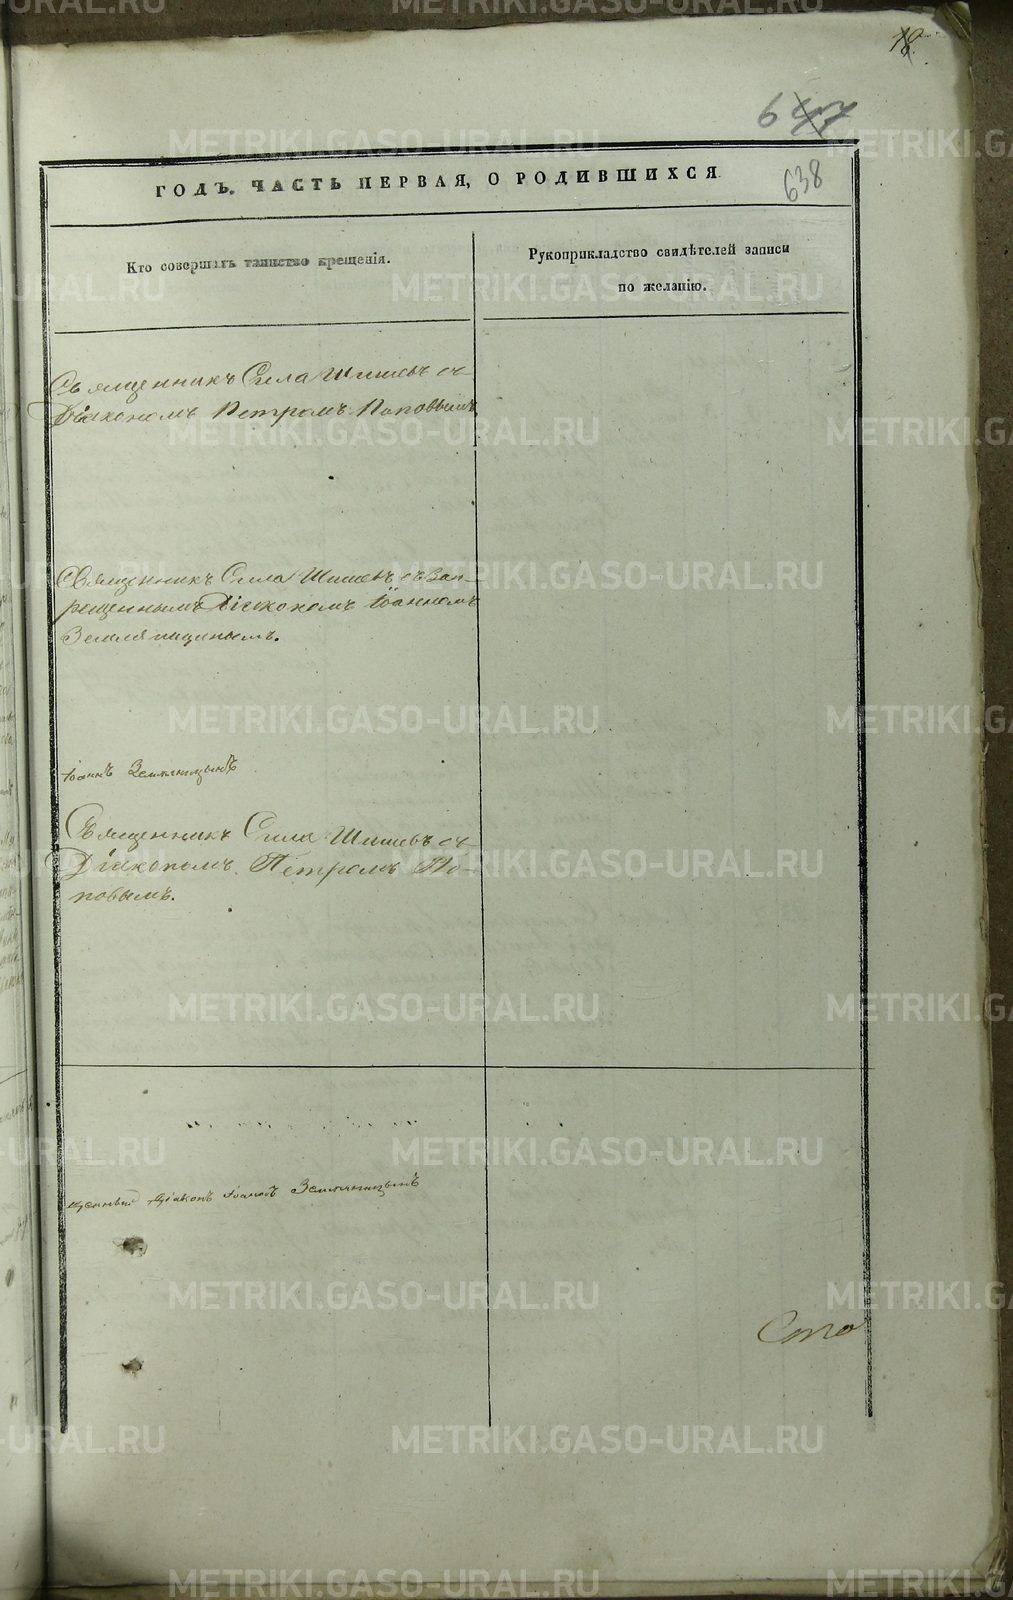 18.
647
638
ГОДЪ. ЧАСТЬ ПЕРВАЯ, О РОДИВШИХСЯ
Кто совершалъ таинство крещенія.
Рукоприкладство свидѣтелей записи
по желанію.
Священникъ Сила Шишевъ съ
Діакономъ Петромъ Поповымъ
Священникъ Сила Шишевъ съ зап-
рещеннымъ Діакономъ Іоанномъ
Земляницынымъ.
Іоаннъ Земляницынъ
Священникъ Сила Шишевъ съ
Діакономъ Петромъ По-
повымъ.
щенный Діаконъ Іоаннъ Земляницынъ
Сто
METRIKI.GASO-URAL.RU